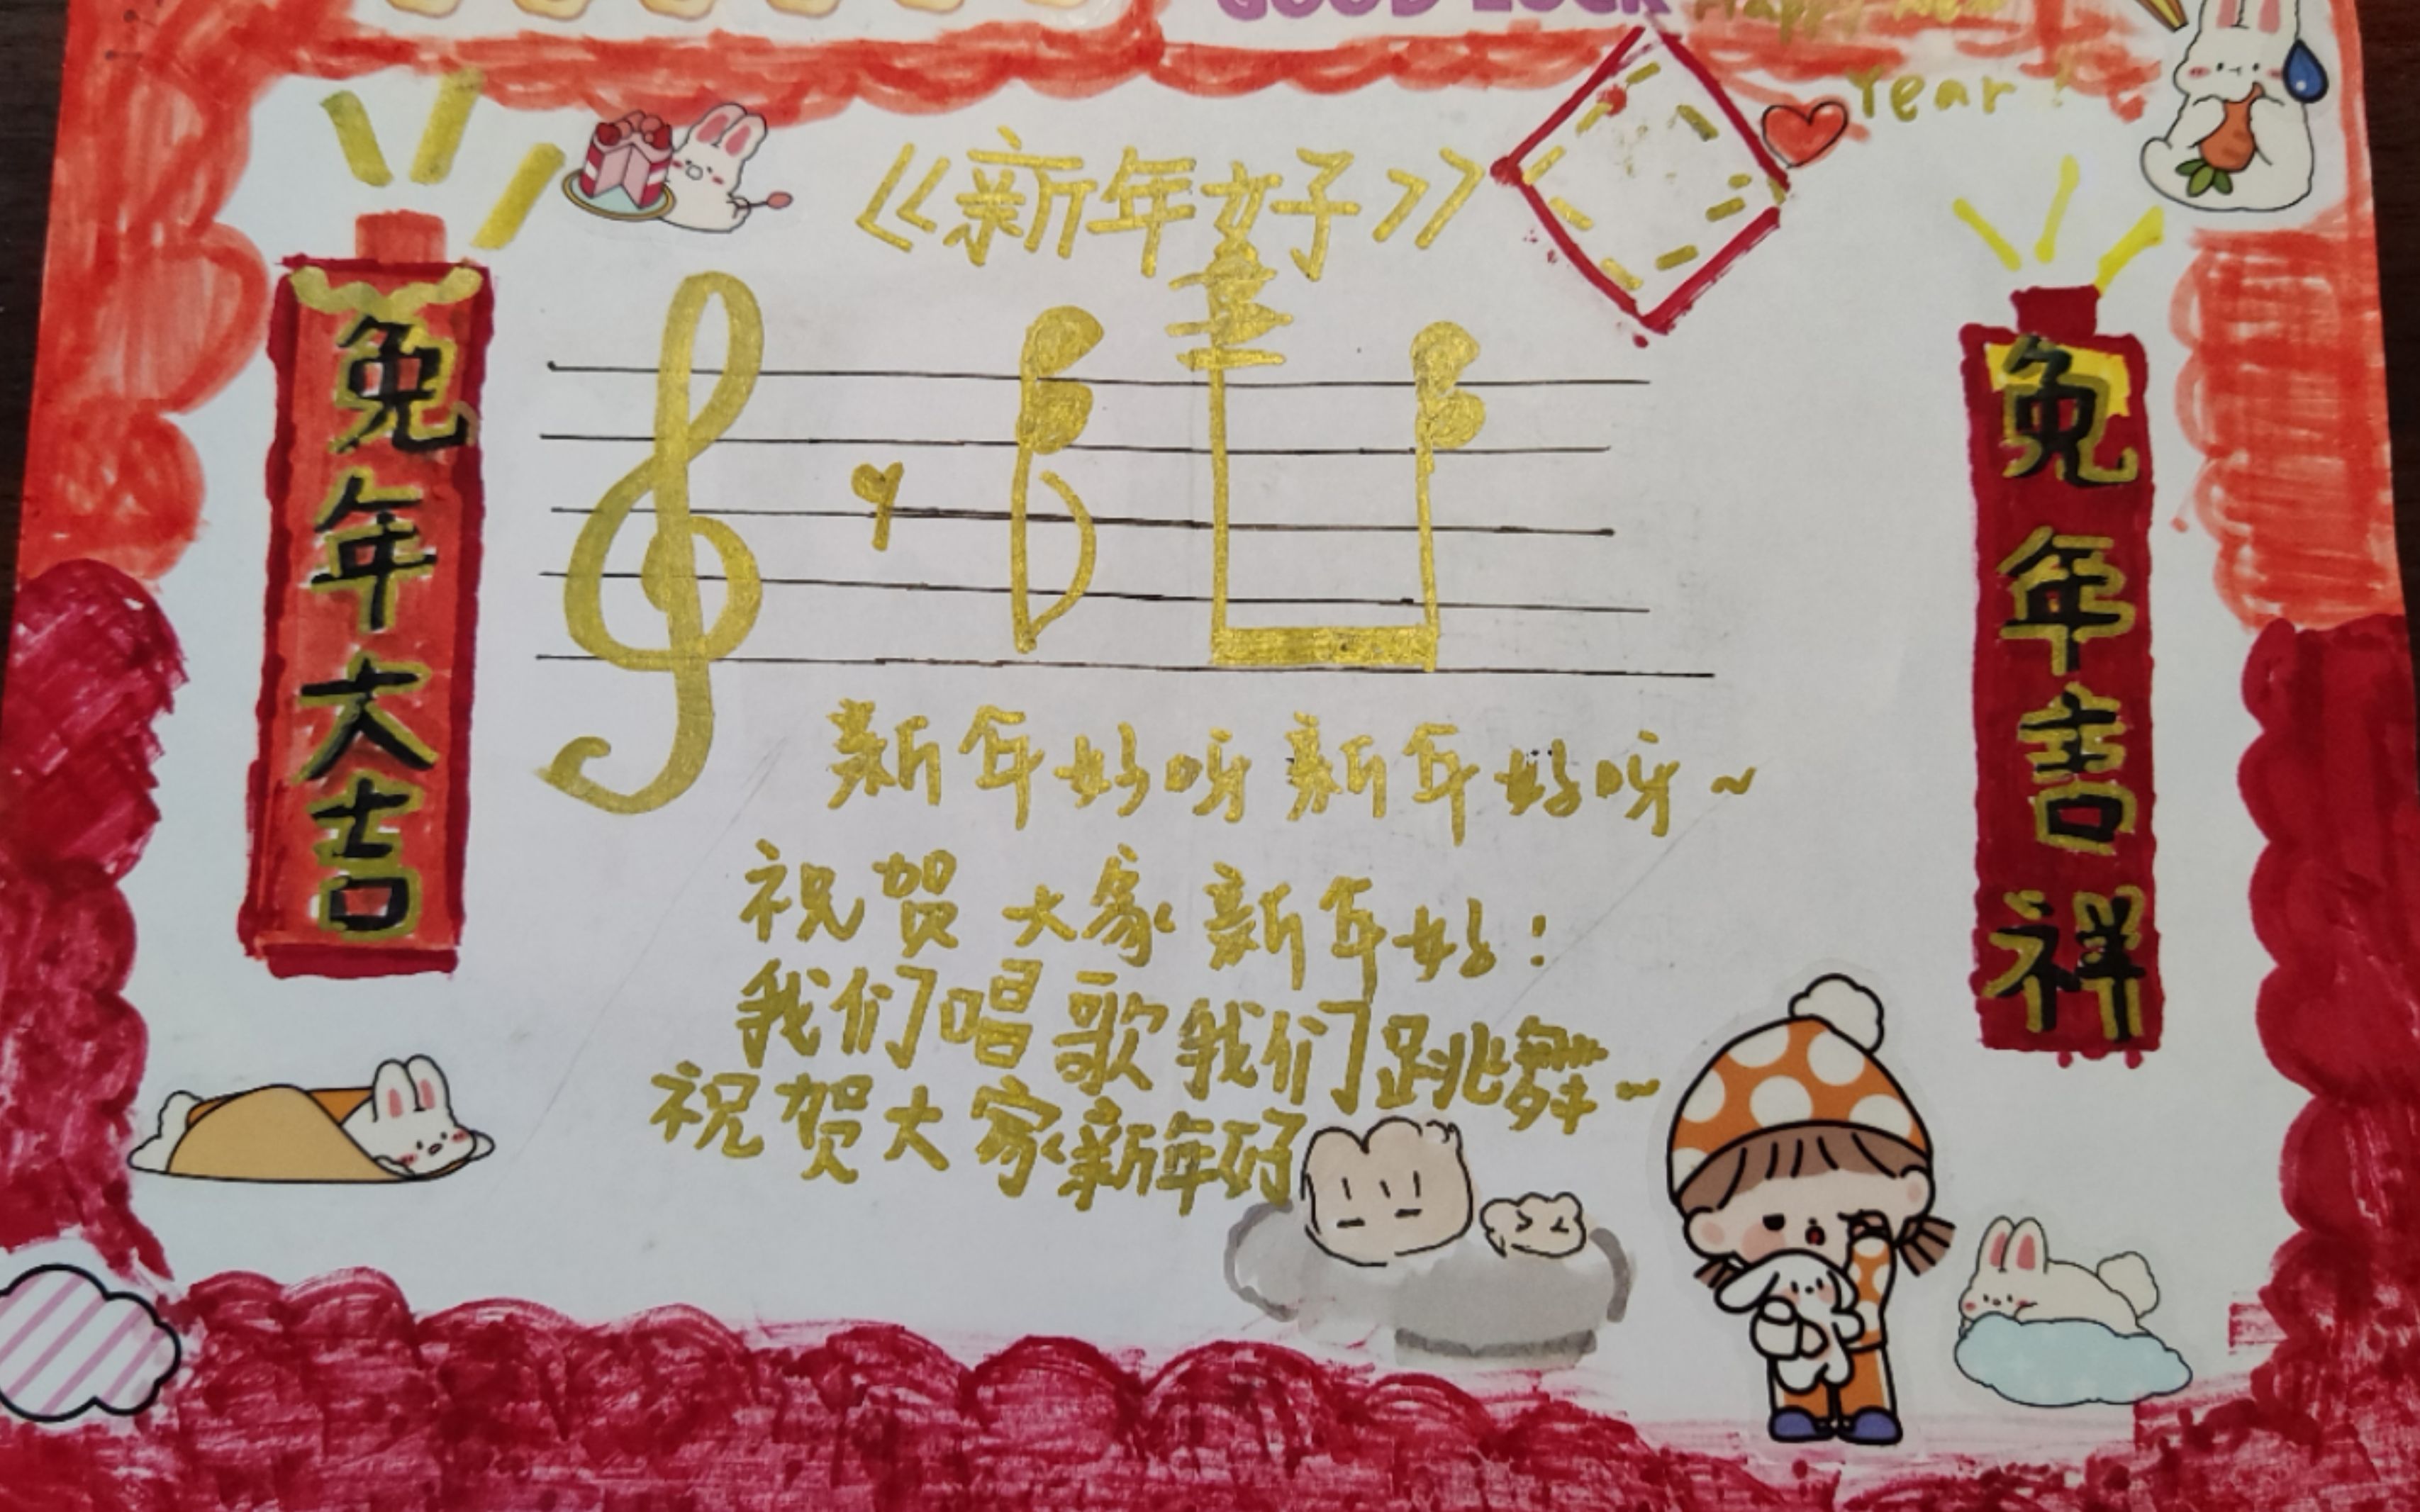 GOOD LUCK
Happy New
Year!
《新年好》
兔年大吉
兔年吉祥
新年好呀 新年好呀~
祝贺大家新年好!
我们唱歌我们跳舞~
祝贺大家新年好